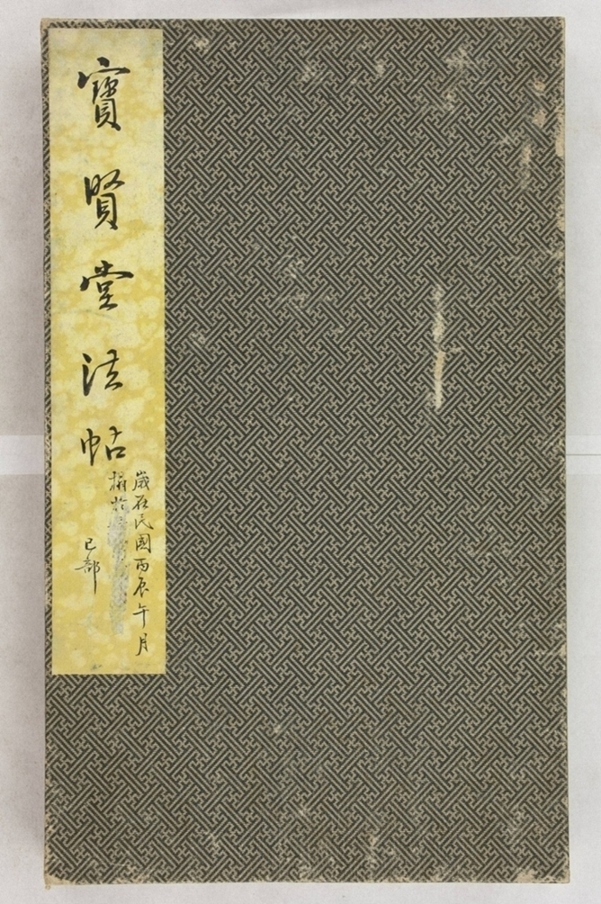 寶賢堂法帖
歲在民國丙辰午月
搨於
己部